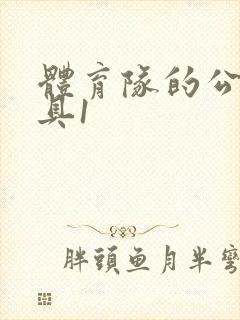 體育隊的公
具1
胖頭魚月半彎